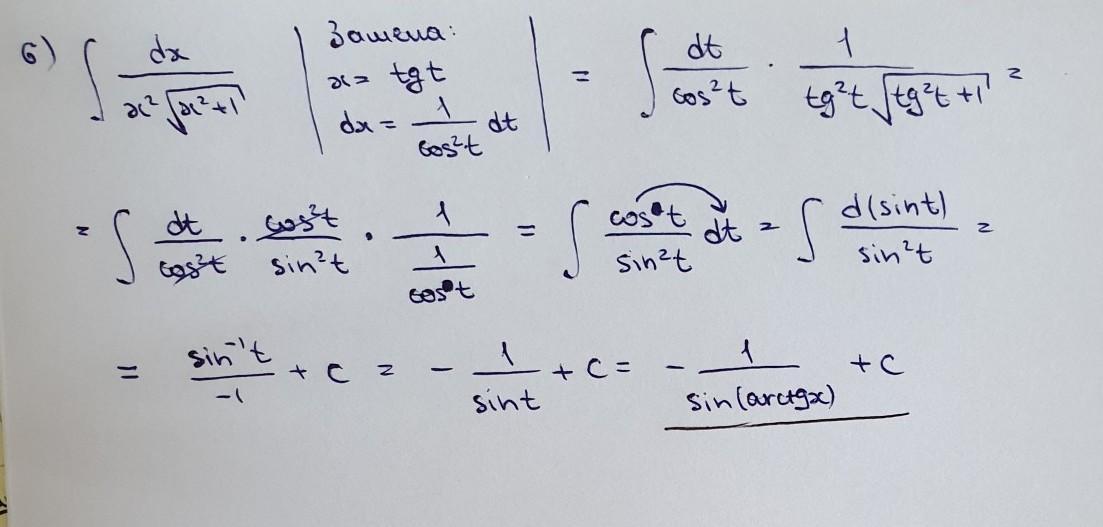 6) ∫ dx / (x² √(x²+1)) | Замена: x = tg t dx = 1/cos²t dt | = ∫ dt/cos²t · 1/(tg²t √(tg²t +1)) =
= ∫ dt/cos²t · cos²t/sin²t · 1/(1/cos t) = ∫ cos t/sin²t dt = ∫ d(sin t)/sin²t =
= sin⁻¹t/-1 + C = - 1/sin t + C = - 1/sin(arctg x) + C